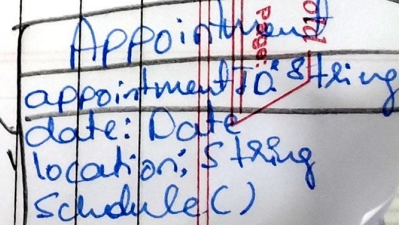 Appointment
appointmentID: String
date: Date
location: String
Schedule()
Page: